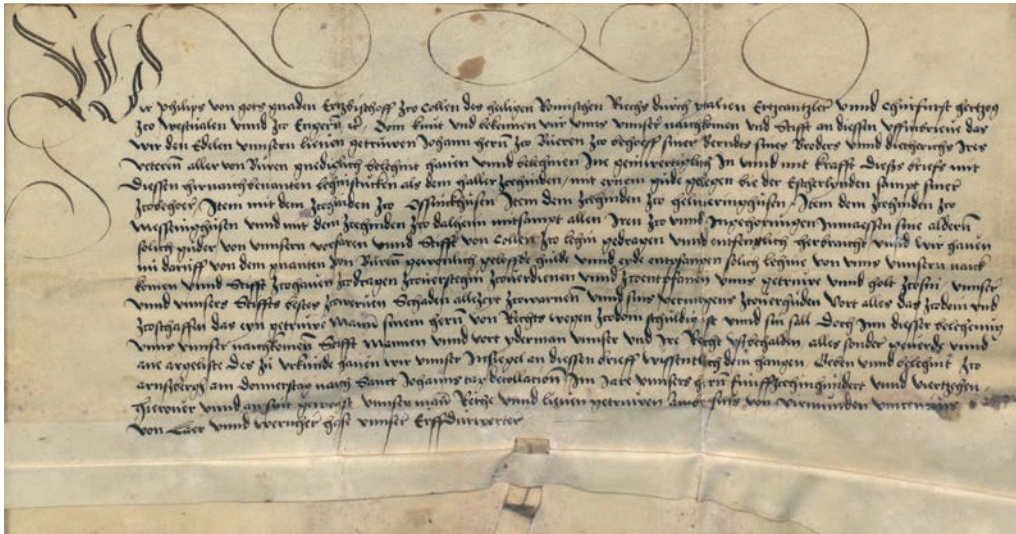 Wir Philips von gots gnaden Ertzbischoff zco Collen des heiligen Romischen Richs durch ytalien Ertzcantzler unnd Churfurst hertzog
zco westualen unnd zco Engern etc. Doin kunt und bekennen vur unns unnser naichkomen und Stifft an diessen uffinbrieue das
wir den Edelen unnsern lieuen getruwen Johann hern zco Bueren zco behoeff siner Berndts sines Broders unnd diethherichs Irer
veteren aller von Büren gnedichlich belehnt hauen unnd belehnen Ine geinwertichlich In und mit krafft dieses brieffs mit
diessen hirnaichbenanten lehnstucken als dem haller zcehinden / mit eynem gude gelegen bie der Escherlynden sampt siner
zcobehoer / Item mit dem zcehinden zco Effinckhusen Item dem zcehinden zco gelmerinckhusen / Item dem zcehinden zco
messinghusen unnd mit dem zcehinden zco dalheim mitsampt allen Iren zco unnd Ingehorungen Inmaessen sine aldern
solich guder von unnsern vorfaren unnd Stifft von Collen zco lehin gedragen unnd entfencklich herbracht unnd wir hauen
nu daruff von dem gnanten von Büren gewonlich geloffde hulde unnd eyde entpfangen solich lehne von unns unnsern naich
komen unnd Stifft zcohauen zcodragen zcouerstehen zcouerdienen unnd zcoentpfanen unns getruwe unnd holt zcosin / unnser
unnd unnsers Stiffts bestes zcoweruen Schaden allezyt zcowarnen unnd sins vermogens zcouerhuden Vort alles das zcodoin und
zcoschaffen das eyn getruwe Mann sinem hern von Rechts wegen zcodoin schuldig ist unnd sin sall Doch Inn dieser belehenung
unns unnser naichkomen Stifft mannen unnd vort yderman unnser und Ire Recht usbehalden alles sonder geuerde unnd
ane argeliste Des zu urkunde hauen wir unnser Ingesegel an diessen brieff wissentlich doin hangen Geben unnd belehent zco
arnszbergh am donnerstag naich Sanct Johanns tag decollation Im Jare unnsers hern Funffzcehinhundert unnd viertzehen
hieruber unnd an sint gewest unnser mann Rethe unnd lieuen getruwen von viermunden
von Laer unnd wernher hase unnser Erffdurwerter